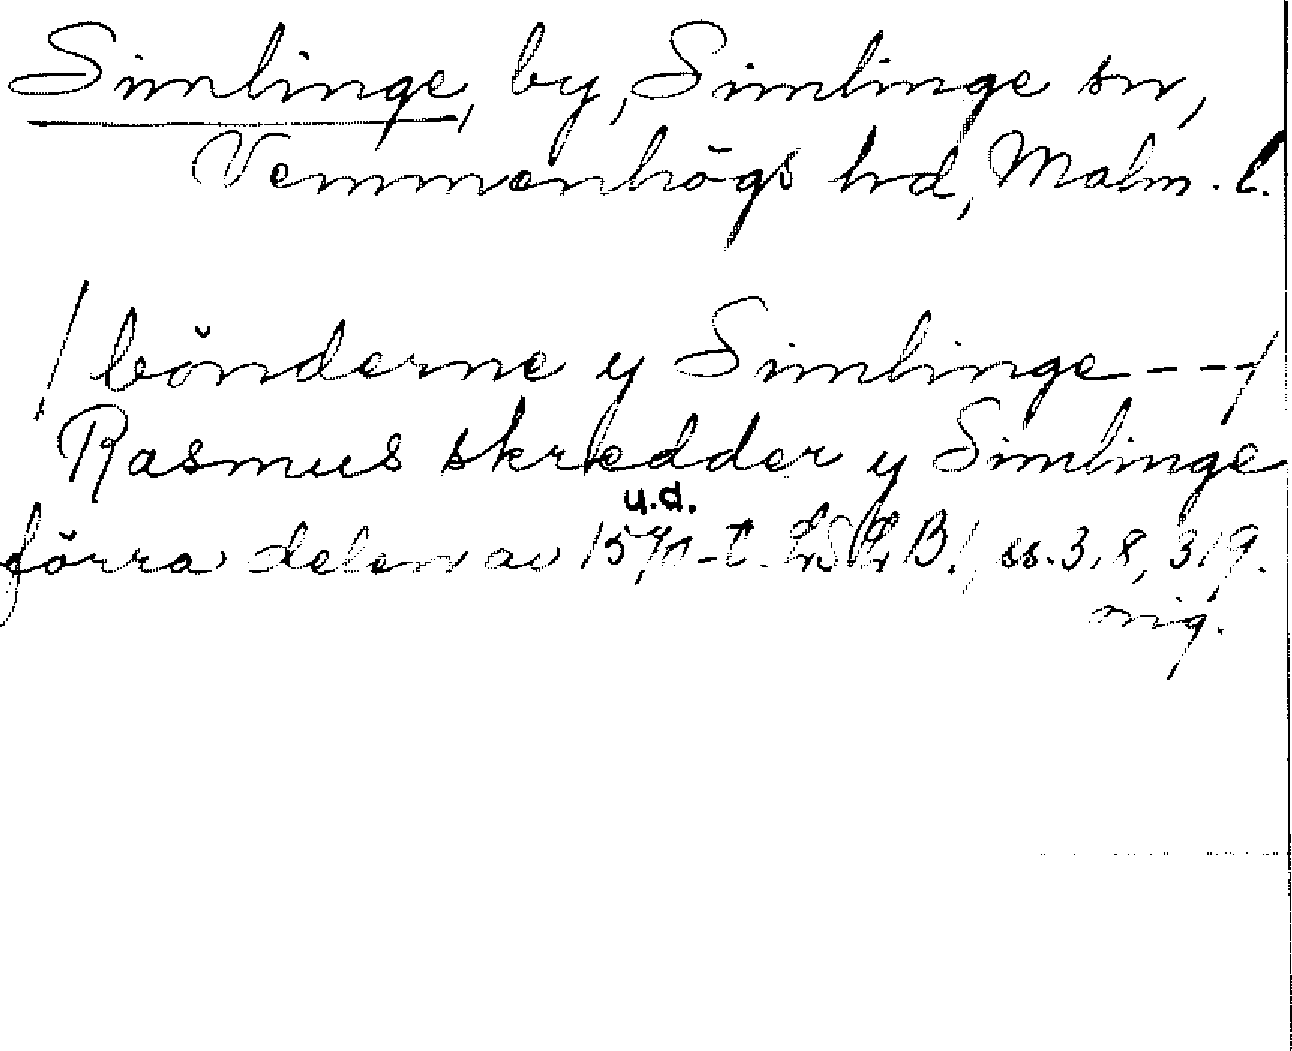 Simlinge, by, Simlinge sn,
Vemmenhögs hd, Malm. l.
/ bönderne y Simlinge --- /
Rasmus skredder y Simlinge
u.d.
förra delen av 15 -t. B. / ss. 3, 8, 319.